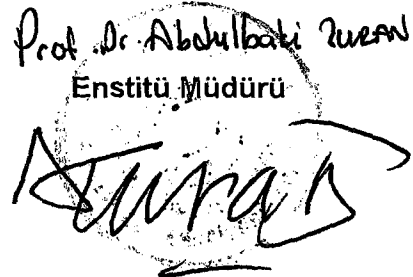 Prof. Dr. Abdulbaki TURAN
Enstitü Müdürü
ATuran